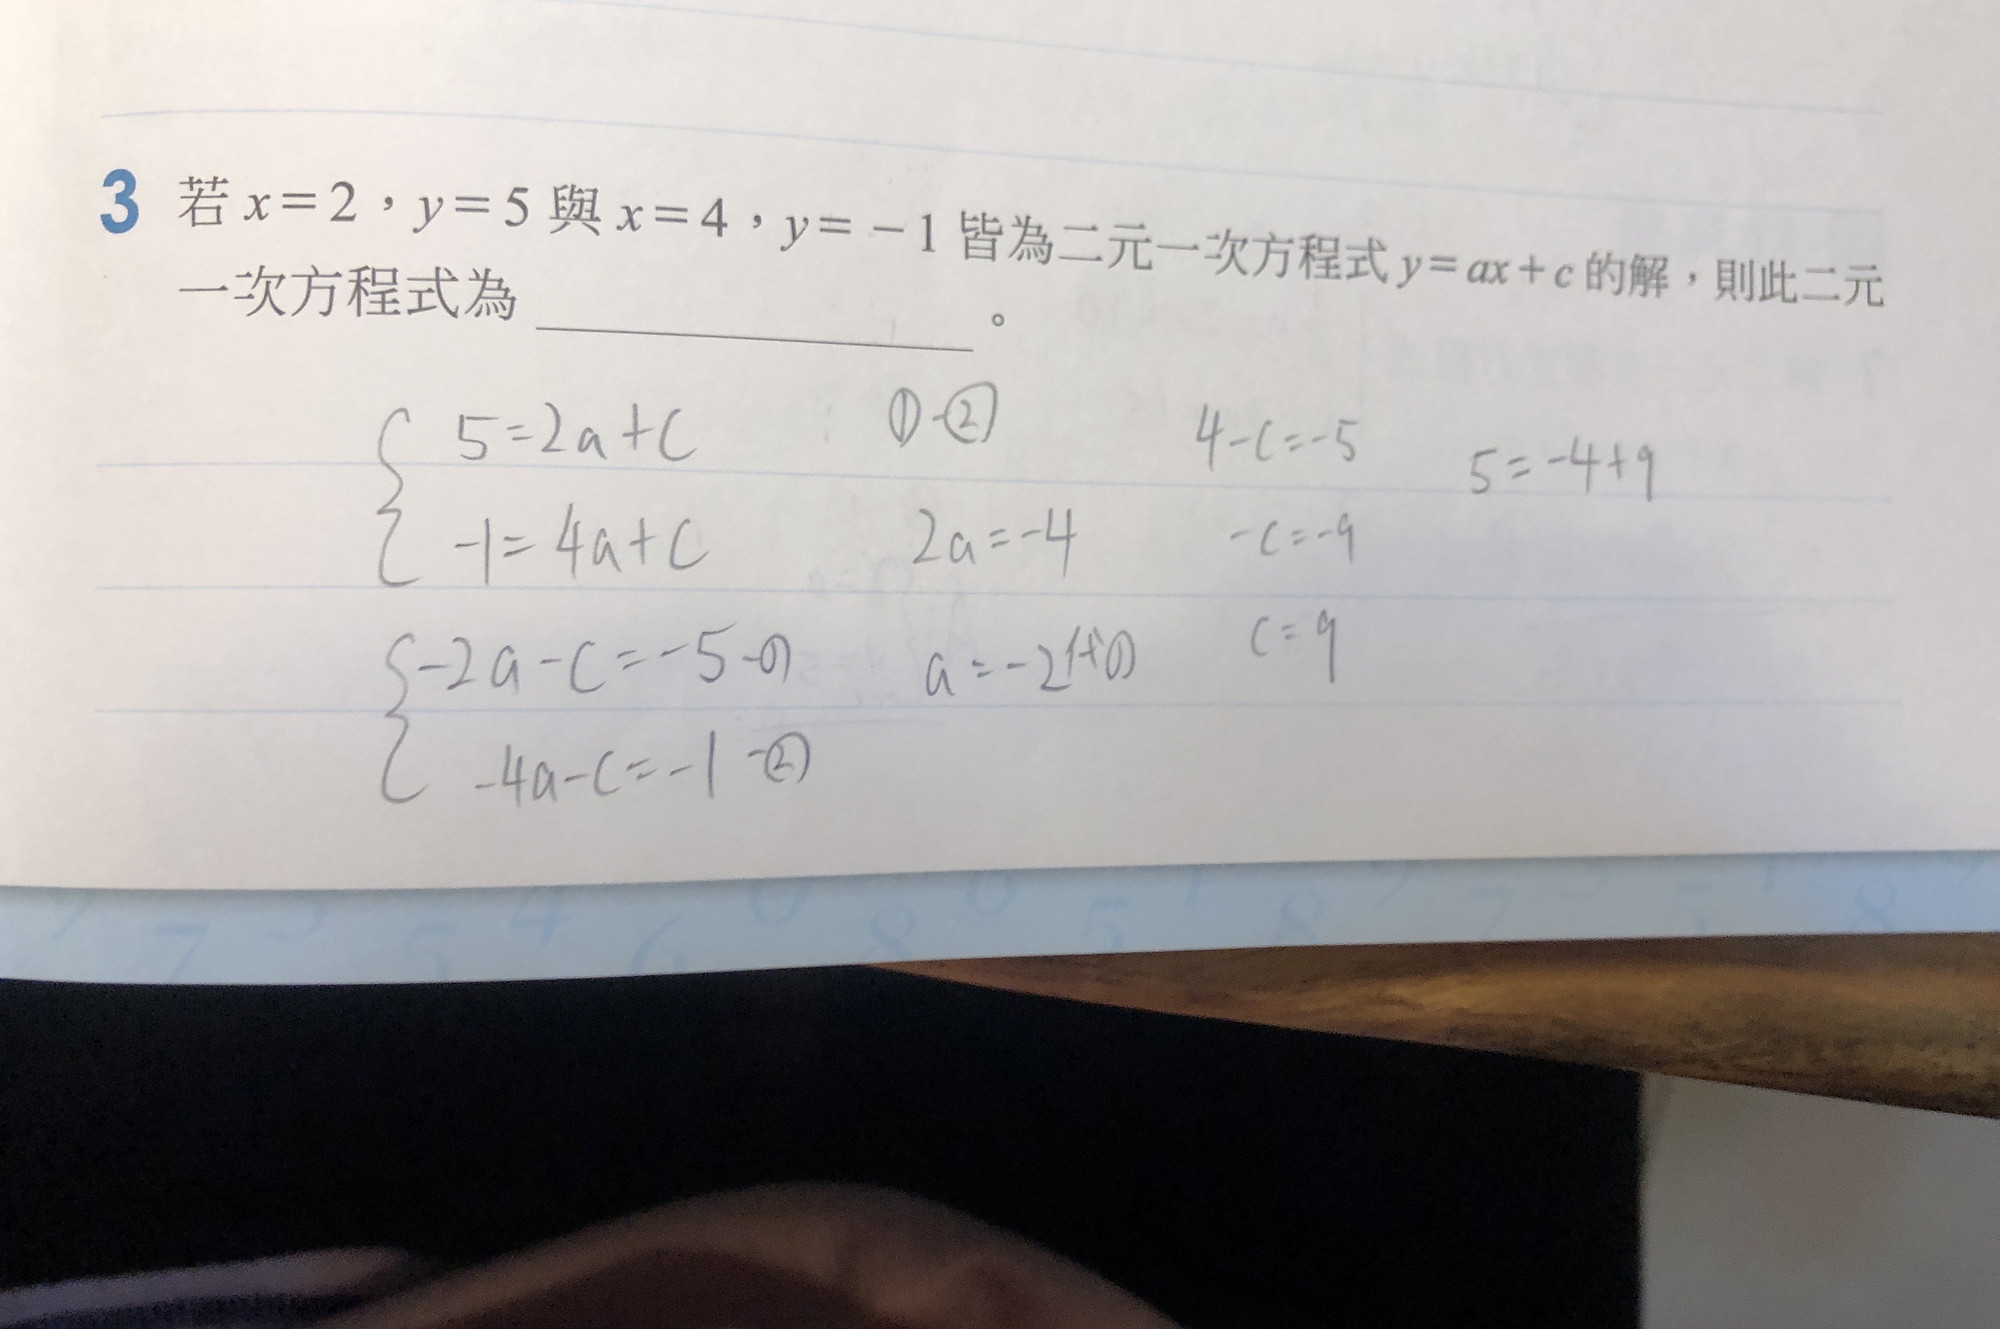 3 若 x=2，y=5 與 x=4，y=-1 皆為二元一次方程式 y=ax+c 的解，則此二元
一次方程式為＿＿＿＿＿＿＿＿。
5=2a+c
-1=4a+c
-2a-c=-5-①
-4a-c=-1-②
①-②
2a=-4
a=-2代①
4-c=-5
-c=-9
c=9
5=-4+9